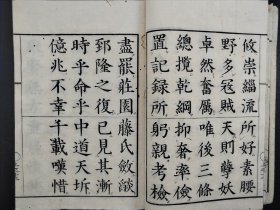 攸崇緇流所好素腰
野多寇賊天則孽妖
卓然奮厲唯後三條
總攬乾綱抑奢率儉
置記錄所躬親考檢
盡罷莊園藤氏斂燄
郅隆之復已見其漸
時乎命乎中道天坼
億兆不幸千載嘆惜